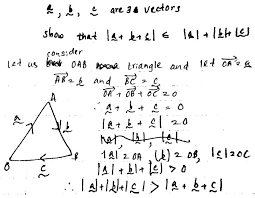 a, b, c are 3 vectors
show that |a + b + c| ≤ |a| + |b| + |c|
consider
Let us OAB triangle and let OA = a
AB = b and BC = c
OA + OB + OC = 0
∴ a + b + c = 0
|a + b + c| = 0
|a|, |b|, |c|
|a| = OA |b| = OB, |c| = OC
|a| + |b| + |c| > 0
∴ |a| + |b| + |c| > |a + b + c|
A
a
b
O
c
B